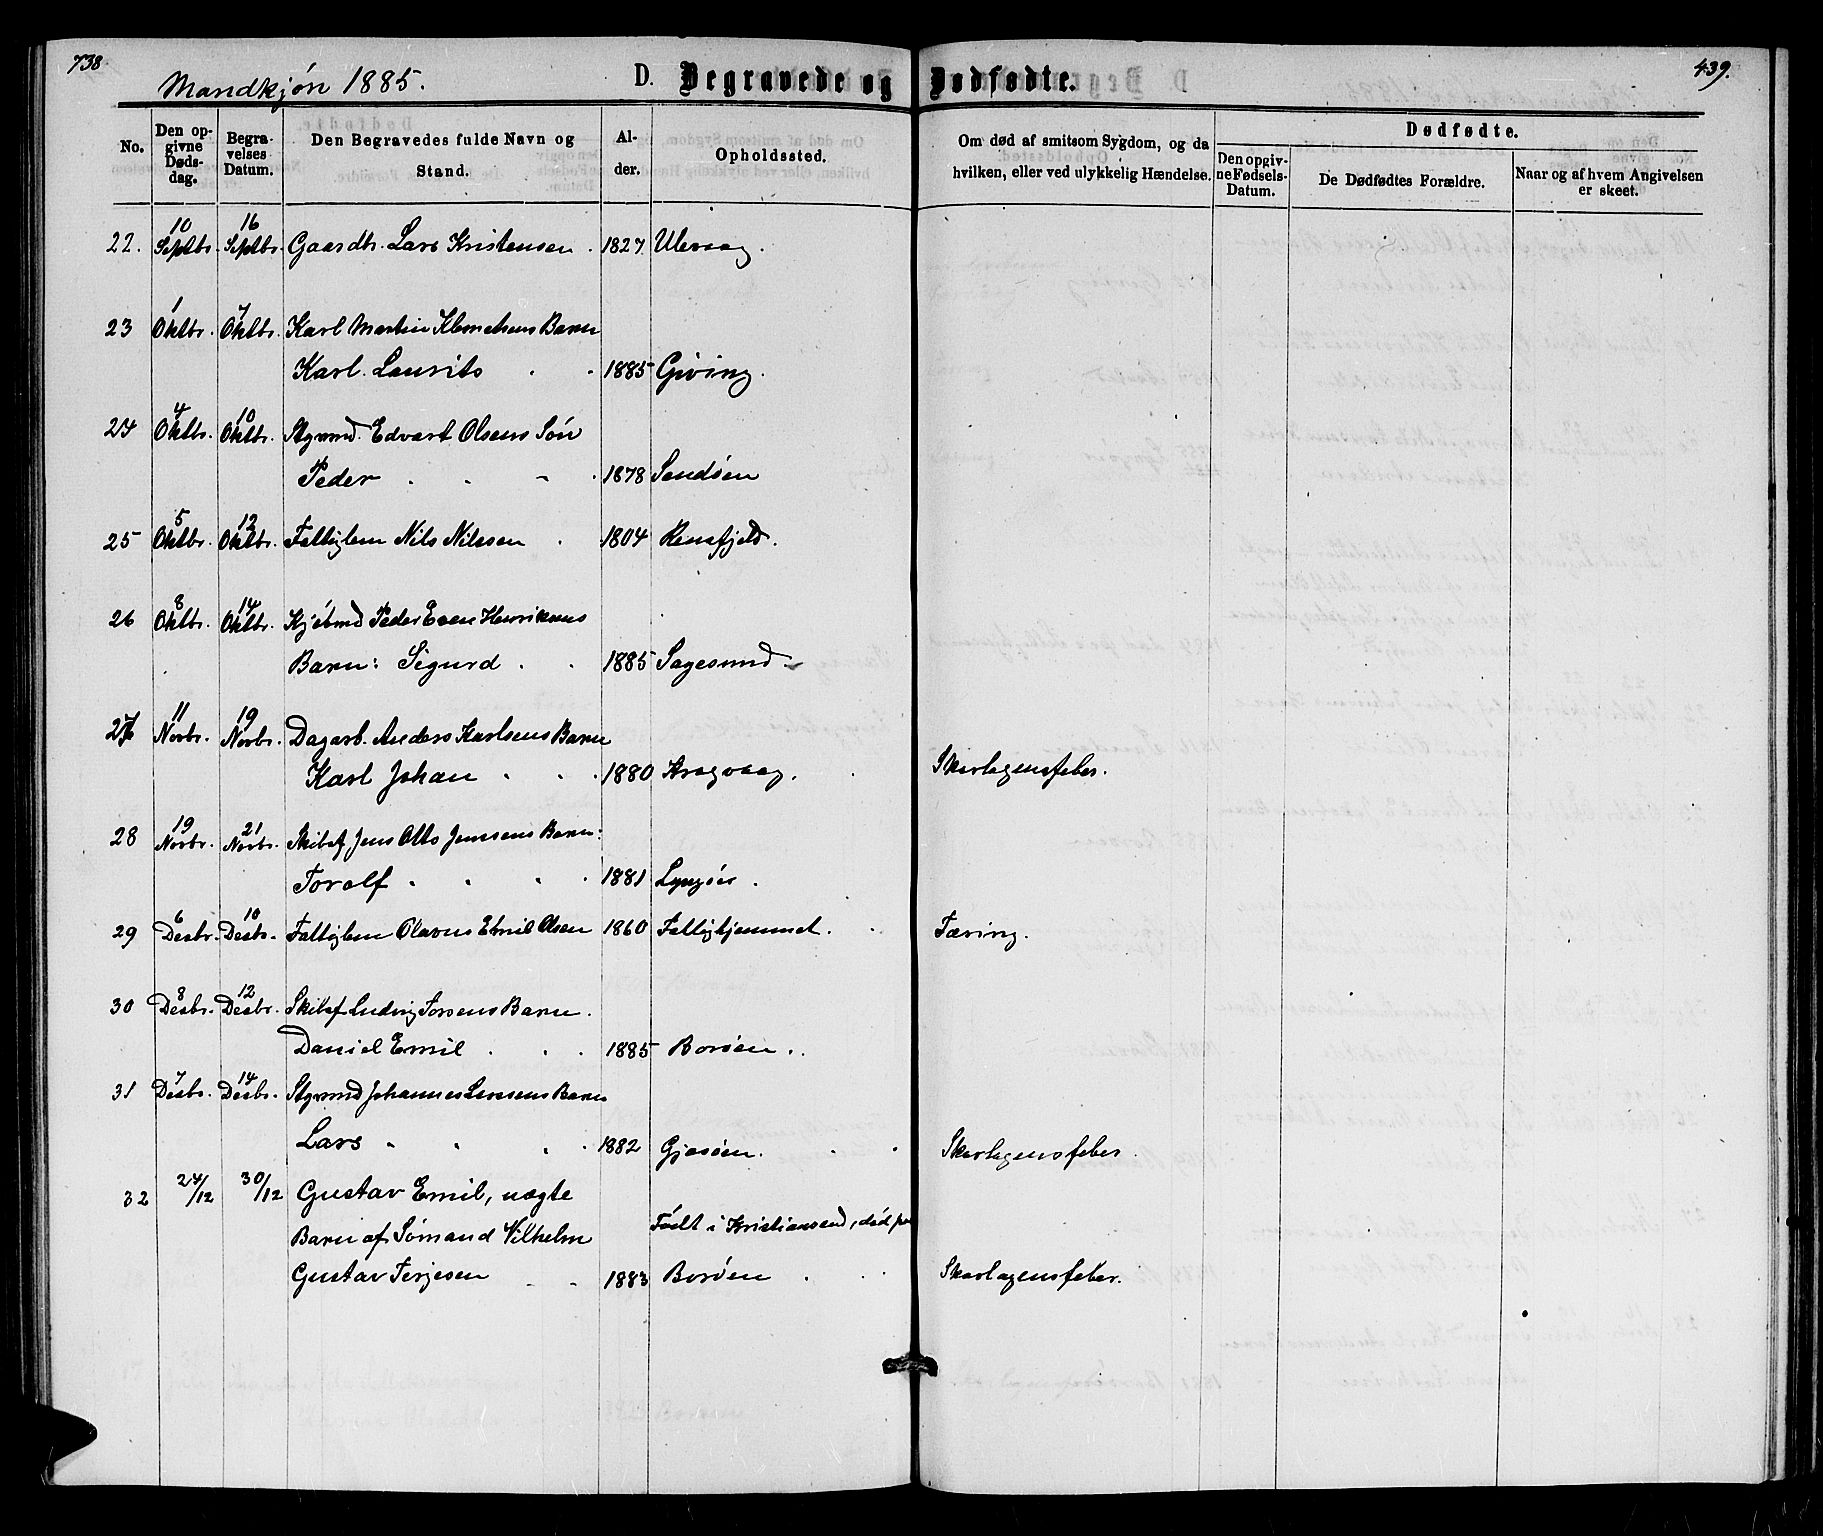 738
439.
Mandkjøn 1885.
D. Begravede og Dødfødte.
No.
Den opgivne Dødsdag.
Begravelses Datum.
Den Begravedes fulde Navn og Stand.
Alder.
Opholdssted.
Om død af smitsom Sygdom, og da hvilken, eller ved ulykkelig Hændelse.
Dødfødte.
Den opgivne Fødsels-Datum.
De Dødfødtes Forældre.
Naar og af hvem Angivelsen er skeet.
10 16
22. Septbr. Septbr. Gaardbr. Lars Kristensen . 1827. Ulevaag.
1 7
23 Oktbr. Oktbr. Karl Martin Klemetsens Barn
Karl Laurits 1885 Giving.
4 10
24 Oktbr. Oktbr. Stgrmd. Edvart Olsens Søn
Peder 1878 Sandøen
5 12
25 Oktbr. Oktbr. Fattiglem Nils Nilssen . 1804 Rensfjeld.
8 14
26 Oktbr. Oktbr. Kjøbmd Peder Even Henriksens
Barn: Sigurd . . 1885 Sagesund
11 19
27 Novbr. Novbr. Dagarb. Anders Karlsens Barn
Karl Johan 1880 Kragvaag. Skarlagensfeber.
19 21
28 Novbr. Novbr. Skibsf Jens Otto Jenssens Barn:
Toralf 1881 Lyngøer.
6 10
29 Desbr. Desbr. Fattiglem Olavus Emil Olsen 1860 Fattighjemmet. Tæring.
8 12
30 Desbr. Desbr. Skibsf Ludvig Torsens Barn.
Daniel Emil 1885 Borøen.
7 14
31 Desbr. Desbr. Stgrmd Johannes Larsens Barn
Lars 1882 Gjesøen. Skarlagensfeber.
32 24/12 30/12 Gustav Emil, uægte
Barn af Sømand Vilhelm Født i Kristianssand, død paa
Gustav Terjesen 1883 Borøen Skarlagensfeber.